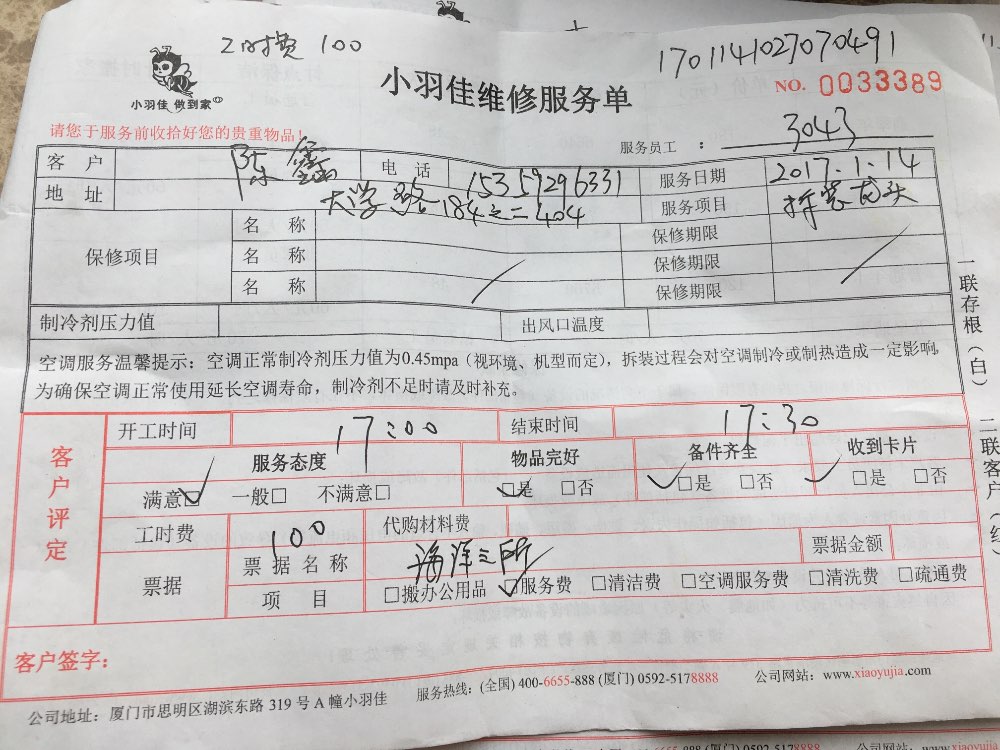 工时费 100
170114027070491
小羽佳 做到家
小羽佳维修服务单
NO. 0033389
请您于服务前收拾好您的贵重物品!
服务员工 : 3043
客 户 陈 电 话 15359296331 服务日期 2017.1.14
地 址 大学路184之二404 服务项目 拆装龙头
保修项目 名 称 保修期限
名 称 保修期限
名 称 保修期限
制冷剂压力值 出风口温度
空调服务温馨提示:空调正常制冷剂压力值为0.45mpa(视环境、机型而定),拆装过程会对空调制冷或制热造成一定影响,
为确保空调正常使用延长空调寿命,制冷剂不足时请及时补充。
一联存根(白)
二联客户(红)
客户评定
开工时间 17:00 结束时间 17:30
服务态度 物品完好 备件齐全 收到卡片
满意☑ 一般□ 不满意□ ☑是 □否 ☑是 □否 ☑是 □否
工时费 100 代购材料费
票据 票据名称 海洋三所 票据金额
项 目 □搬办公用品 ☑服务费 □清洁费 □空调服务费 □清洗费 □疏通费
客户签字:
公司地址:厦门市思明区湖滨东路 319 号 A 幢小羽佳 服务热线:(全国) 400-6655-888 (厦门) 0592-5178888 公司网站:www.xiaoyujia.com